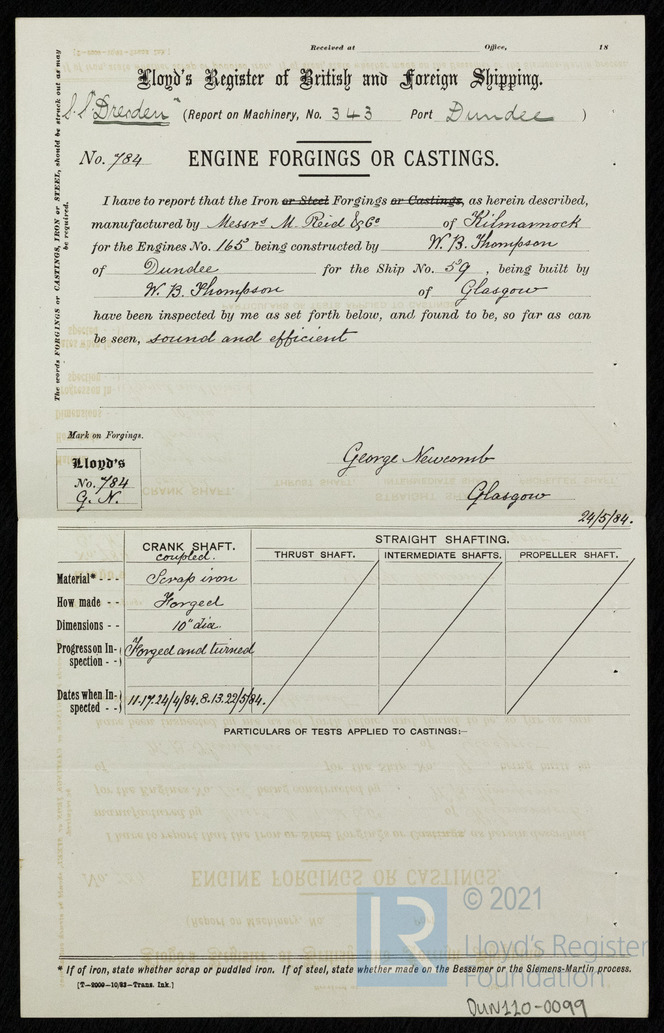 Received at Office, 18
Lloyd's Register of British and Foreign Shipping.
S.S. "Dresden" (Report on Machinery, No. 343 Port Dundee )
No. 784 ENGINE FORGINGS OR CASTINGS.
The words FORGINGS or CASTINGS, IRON or STEEL, should be struck out as may
be required.
I have to report that the Iron or Steel Forgings or Castings, as herein described,
manufactured by Messrs M. Reid & Co of Kilmarnock
for the Engines No. 165 being constructed by W. B. Thompson
of Dundee for the Ship No. 59, being built by
W. B. Thompson of Glasgow
have been inspected by me as set forth below, and found to be, so far as can
be seen, sound and efficient
Mark on Forgings.
Lloyd's
No. 784
G. N.
George Newcomb
Glasgow
24/5/84.
CRANK SHAFT. STRAIGHT SHAFTING.
coupled. THRUST SHAFT. INTERMEDIATE SHAFTS. PROPELLER SHAFT.
Material* - - - Scrap iron
How made - - Forged
Dimensions - - 10" dia.
Progress on In- Forged and turned
spection - -
Dates when In- 11.17.24/4/84.8.13.22/5/84.
spected - -
PARTICULARS OF TESTS APPLIED TO CASTINGS:—
* If of iron, state whether scrap or puddled iron. If of steel, state whether made on the Bessemer or the Siemens-Martin process.
[T—2000—10/83—Trans. Ink.]
LR © 2021
Lloyd's Register
Foundation
DUN110-0099